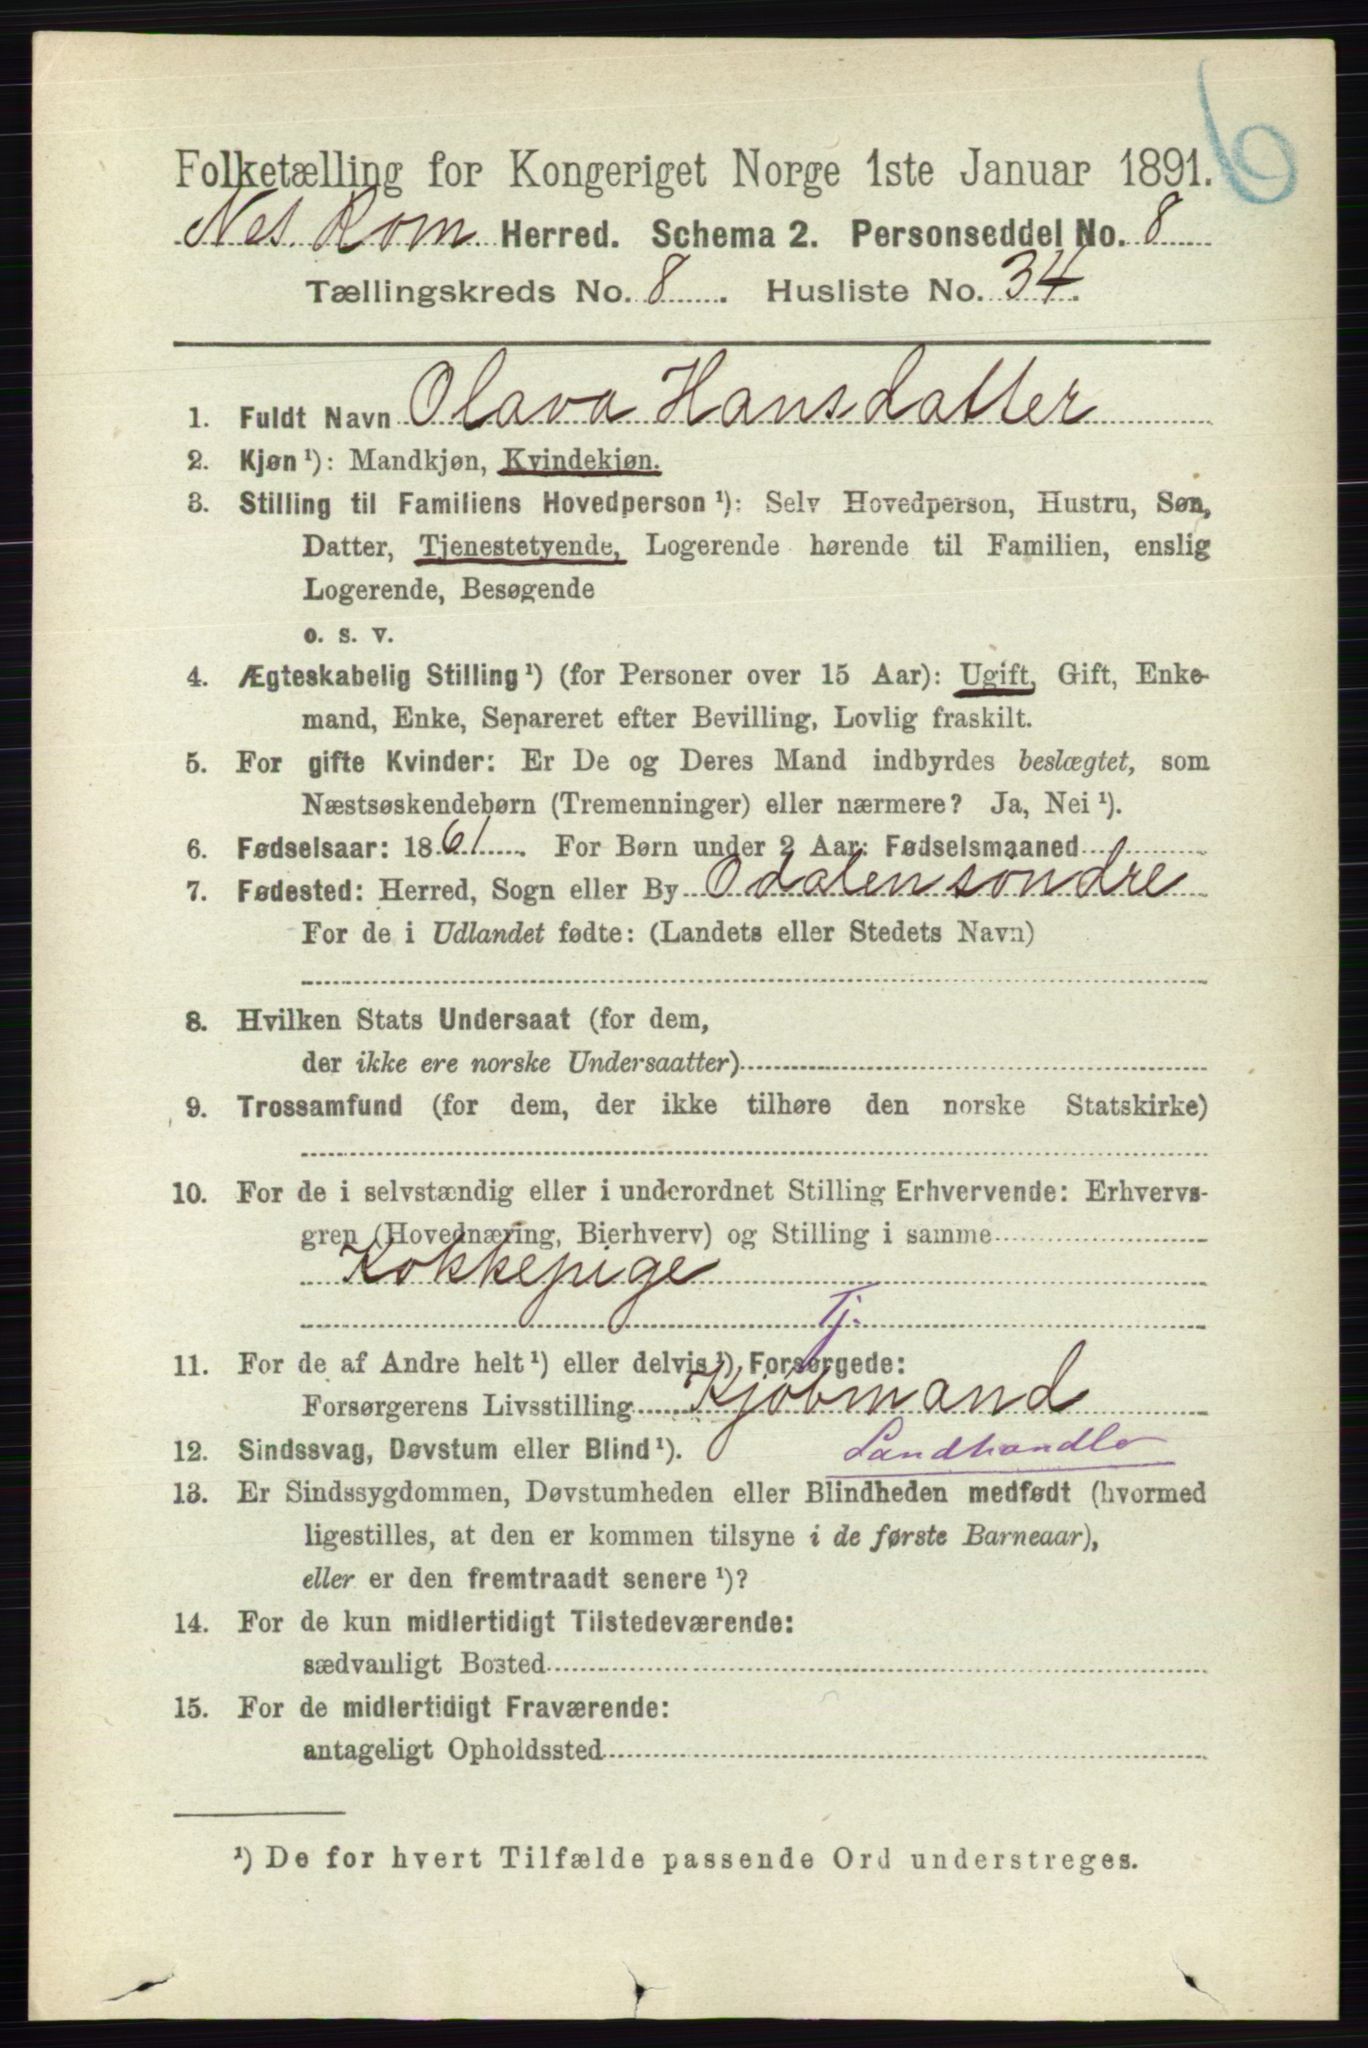 6
Folketælling for Kongeriget Norge 1ste Januar 1891.
Nes. Rom Herred. Schema 2. Personseddel No. 8
Tællingskreds No. 8. Husliste No. 34.
1. Fuldt Navn Olava Hansdatter
2. Kjøn ¹): Mandkjøn, Kvindekjøn.
3. Stilling til Familiens Hovedperson ¹): Selv Hovedperson, Hustru, Søn,
Datter, Tjenestetyende, Logerende hørende til Familien, enslig
Logerende, Besøgende
o. s. v.
4. Ægteskabelig Stilling ¹) (for Personer over 15 Aar): Ugift, Gift, Enke-
mand, Enke, Separeret efter Bevilling, Lovlig fraskilt.
5. For gifte Kvinder: Er De og Deres Mand indbyrdes beslægtet, som
Næstsøskendebørn (Tremenninger) eller nærmere? Ja, Nei ¹).
6. Fødselsaar: 1861. For Børn under 2 Aar: Fødselsmaaned
7. Fødested: Herred, Sogn eller By Odalen söndre
For de i Udlandet fødte: (Landets eller Stedets Navn)
8. Hvilken Stats Undersaat (for dem,
der ikke ere norske Undersaatter)
9. Trossamfund (for dem, der ikke tilhøre den norske Statskirke)
10. For de i selvstændig eller i underordnet Stilling Erhvervende: Erhvervs-
gren (Hovednæring, Bierhverv) og Stilling i samme
Kokkepige
Tj.
11. For de af Andre helt ¹) eller delvis ¹) Forsørgede:
Forsørgerens Livsstilling Kjöbmand
12. Sindssvag, Døvstum eller Blind ¹). Landhandle
13. Er Sindssygdommen, Døvstumheden eller Blindheden medfødt (hvormed
ligestilles, at den er kommen tilsyne i de første Barneaar),
eller er den fremtraadt senere ¹)?
14. For de kun midlertidigt Tilstedeværende:
sædvanligt Bosted
15. For de midlertidigt Fraværende:
antageligt Opholdssted
¹) De for hvert Tilfælde passende Ord understreges.